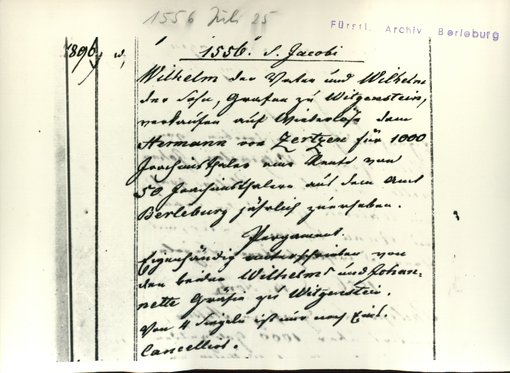 1556 Juli 25
Fürstl. Archiv Berleburg
1896, d, 1556. S. Jacobi
Wilhelm der Vater und Wilhelm
der Sohn, Grafen zu Witgenstein,
verkaufen auf Wiederlöse dem
Hermann von Zertzen für 1000
Joachimsthaler eine Rente von
50 Joachimsthalern aus dem Amt
Berleburg jährlich zu erheben.
Pergament.
Eigenhändig unterschrieben von
den beiden Wilhelms und Johan-
nette Gräfin zu Witgenstein.
Von 4 Siegeln ist nur noch
Cancelliert.